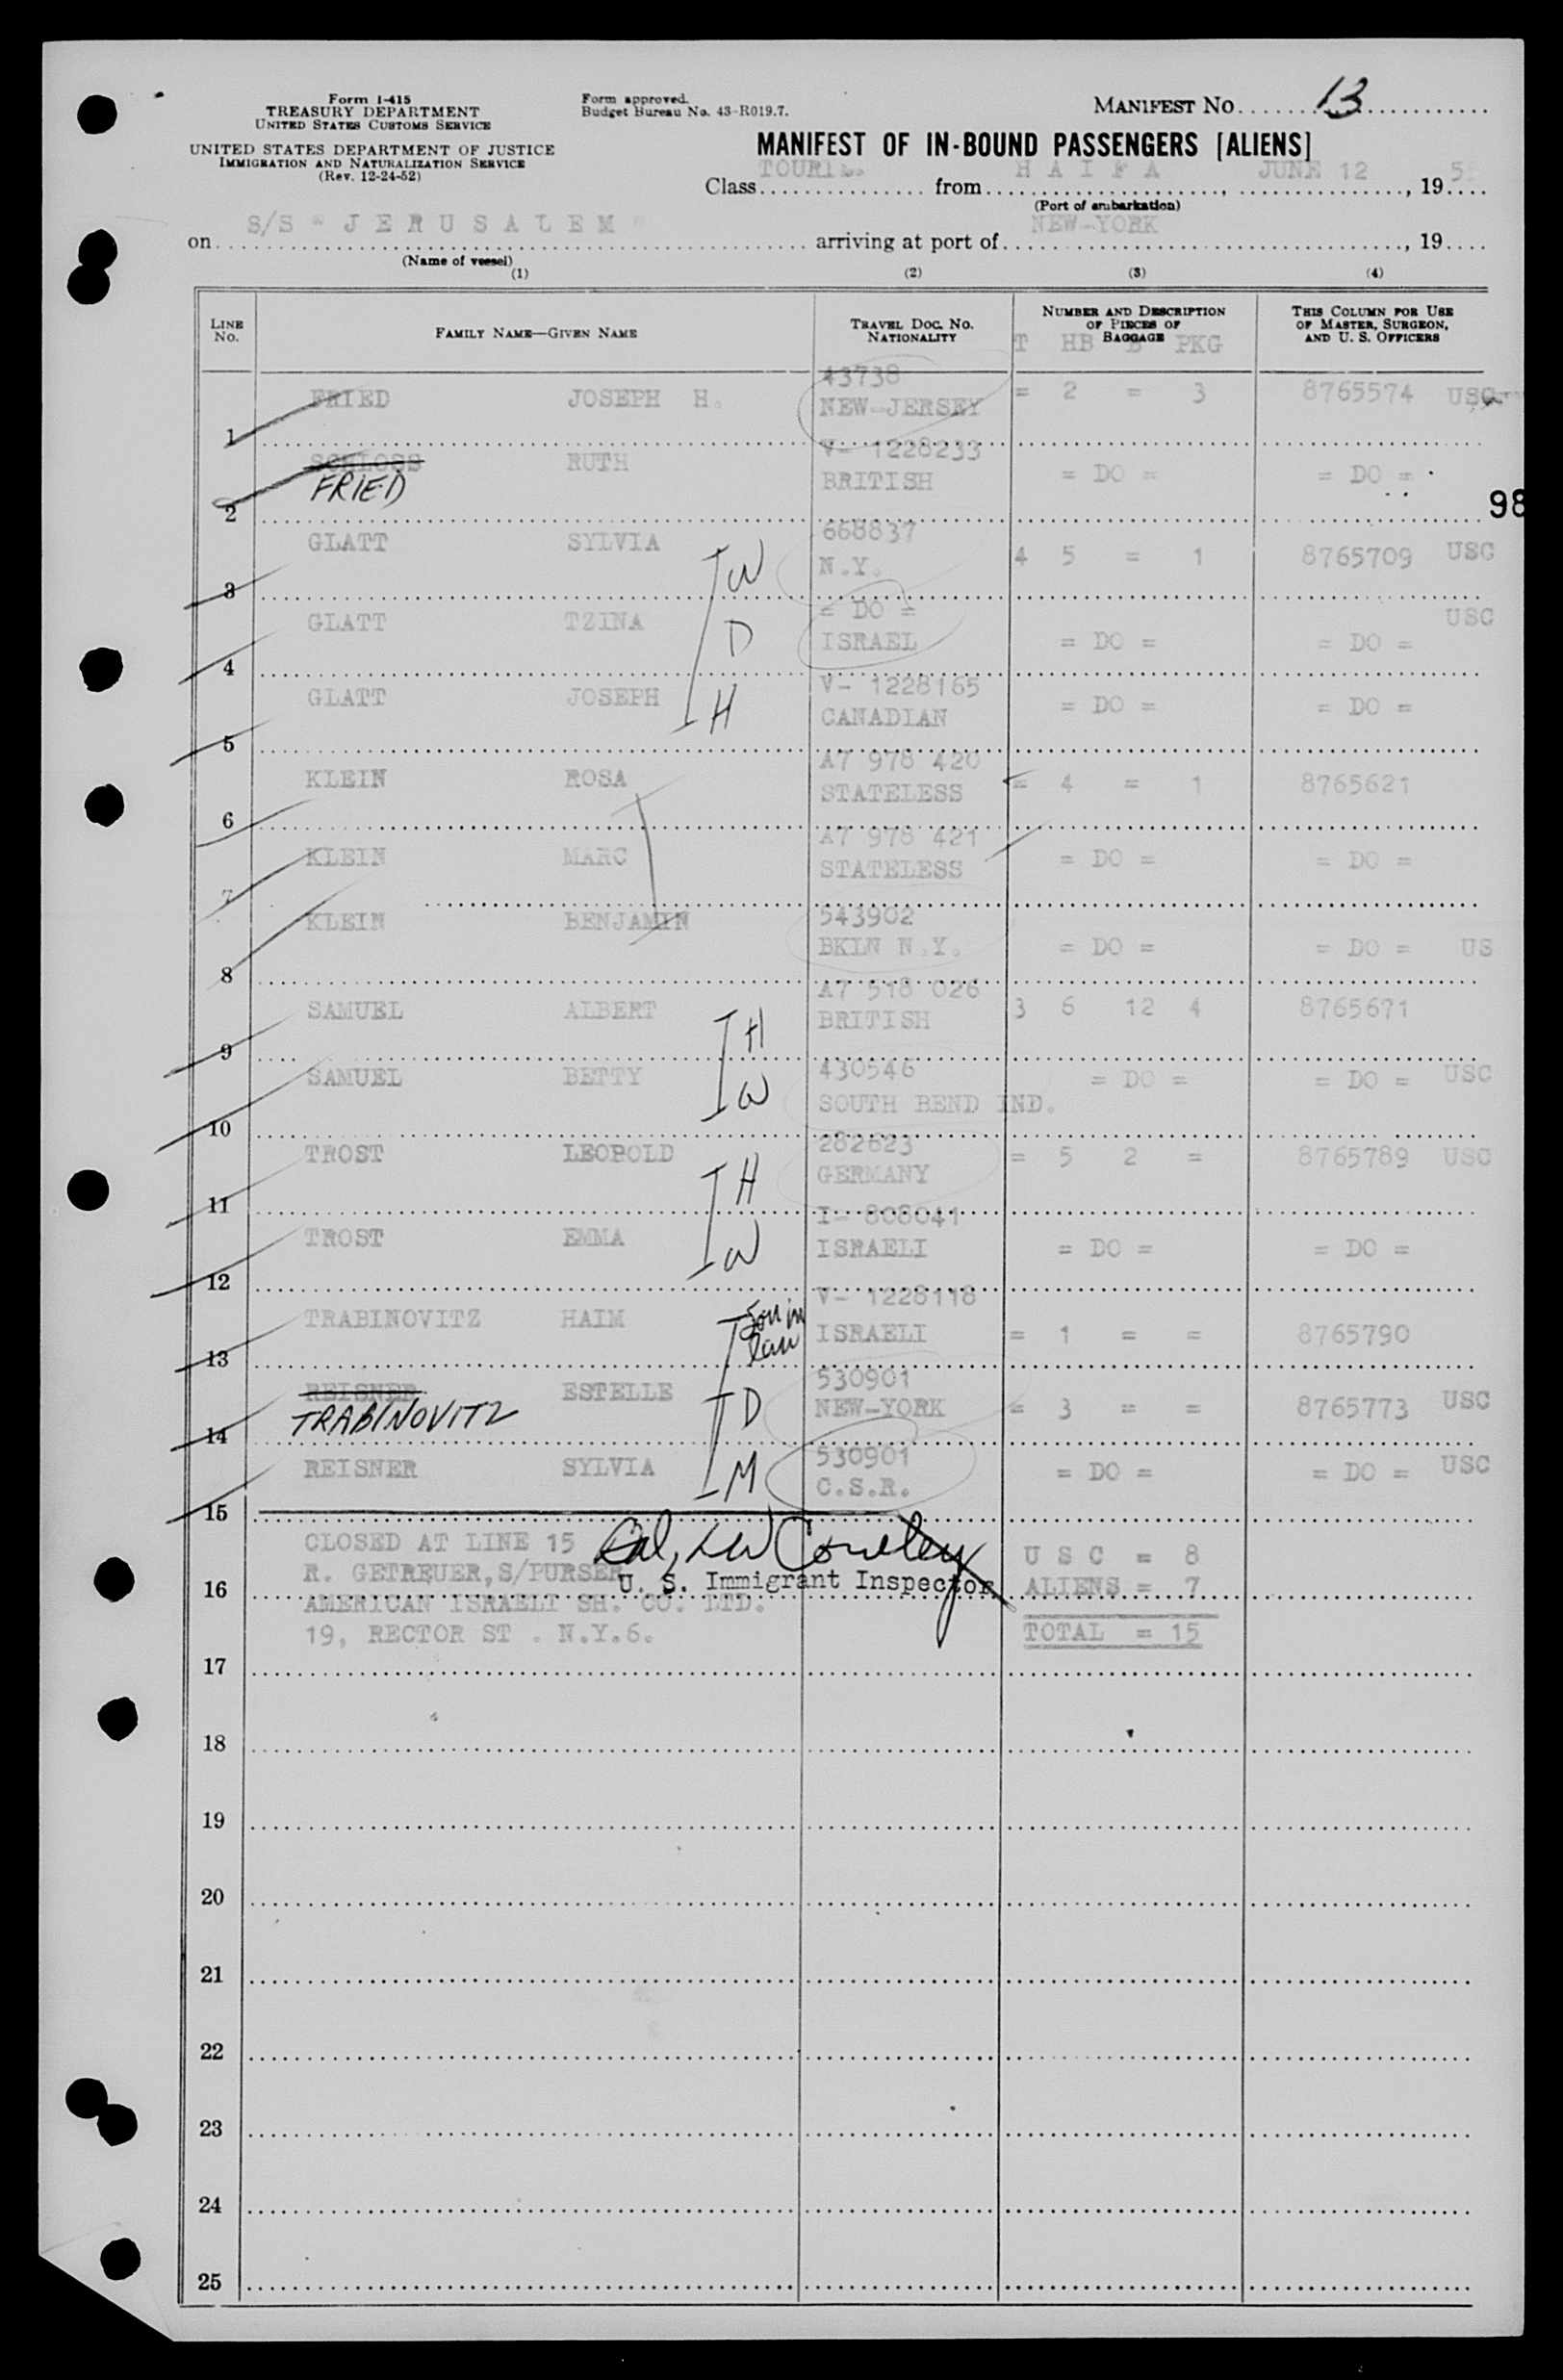 Form I-415
TREASURY DEPARTMENT
UNITED STATES CUSTOMS SERVICE
UNITED STATES DEPARTMENT OF JUSTICE
IMMIGRATION AND NATURALIZATION SERVICE
(Rev. 12-24-52)
Form approved.
Budget Bureau No. 43-R019.7.
MANIFEST NO. 13
MANIFEST OF IN-BOUND PASSENGERS [ALIENS]
Class from H A I F A, JUNE 12, 19
(Port of embarkation)
on S/S " J E R U S A L E M " arriving at port of NEW-YORK, 19
(Name of vessel)
(1) (2) (3) (4)
LINE NO. FAMILY NAME—GIVEN NAME TRAVEL DOC. NO. NATIONALITY NUMBER AND DESCRIPTION OF PIECES OF BAGGAGE THIS COLUMN FOR USE OF MASTER, SURGEON, AND U. S. OFFICERS
T HB B PKG
43738
1 FRIED JOSEPH H. NEW-JERSEY = 2 = 3 8765574 USC
V- 1228233
2 SCHLOSS RUTH BRITISH = DO = = DO =
FRIED
98
668837
3 GLATT SYLVIA W N.Y. 4 5 = 1 8765709 USC
= DO =
4 GLATT TZINA D ISRAEL = DO = = DO = USC
V- 1228165
5 GLATT JOSEPH H CANADIAN = DO = = DO =
A7 978 420
6 KLEIN ROSA STATELESS = 4 = 1 8765621
A7 978 421
7 KLEIN MARC STATELESS = DO = = DO =
543902
8 KLEIN BENJAMIN BKLN N.Y. = DO = = DO = US
A7 518 026
9 SAMUEL ALBERT H BRITISH 3 6 12 4 8765671
430546
10 SAMUEL BETTY W SOUTH BEND IND. = DO = = DO = USC
282623
11 TROST LEOPOLD H GERMANY = 5 2 = 8765789 USC
I- 808041
12 TROST EMMA W ISRAELI = DO = = DO =
V- 1228118
13 TRABINOVITZ HAIM Son in law ISRAELI = 1 = = 8765790
530901
14 REISNER ESTELLE D NEW-YORK = 3 = = 8765773 USC
TRABINOVITZ
530901
15 REISNER SYLVIA M C.S.R. = DO = = DO = USC
CLOSED AT LINE 15 U S C = 8
16 R. GETREUER, S/PURSER U. S. Immigrant Inspector ALIENS = 7
AMERICAN ISRAELI SH. CO. LTD.
19, RECTOR ST . N.Y.6. TOTAL = 15
17
18
19
20
21
22
23
24
25